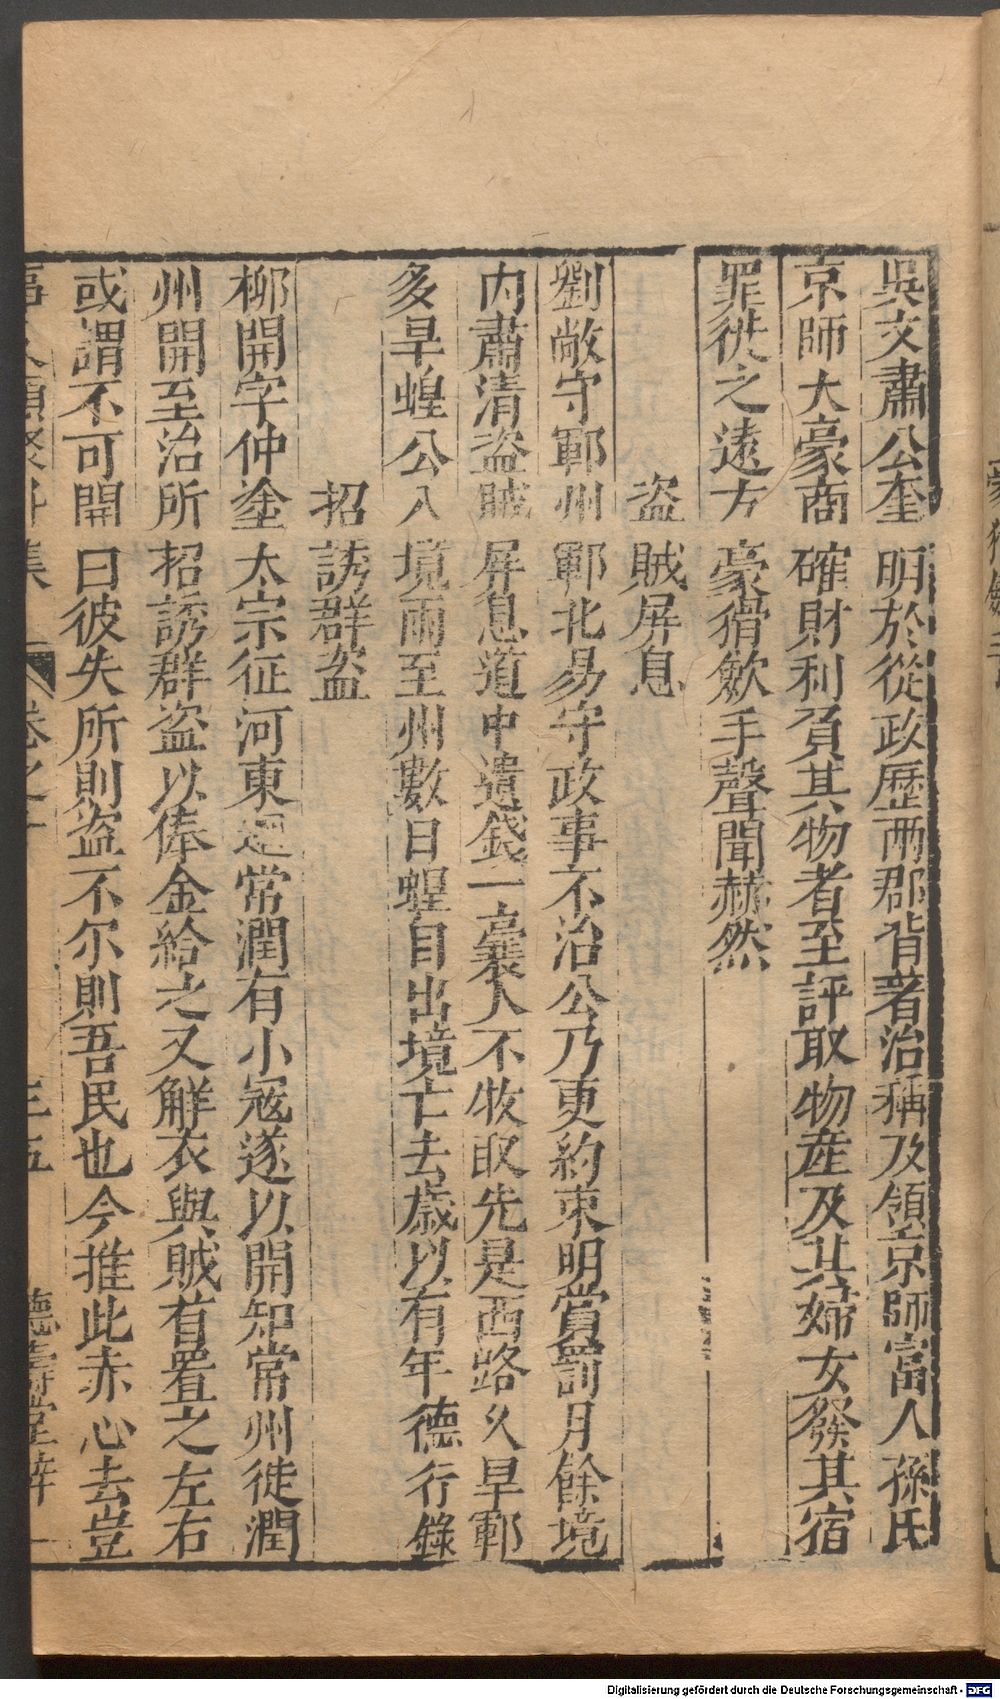 吳文肅公奎明於從政歷兩郡皆著治稱及領京師富人孫氏
京師大豪商確財利負其物者至評取物産及其婦女發其宿
罪徙之遠方豪猾歛手聲聞赫然
盜賊屏息
劉敞守鄆州鄆北易守政事不治公乃更約束明賞罰月餘境
内肅清盜賊屏息道中遺錢一囊人不收取先是西路久旱鄆
多旱蝗公入境雨至州數日蝗自出境亡去歲以有年德行錄
招誘群盜
柳開字仲塗太宗征河東廻常潤有小冦遂以開知常州徒潤
州開至治所招誘群盜以俸金給之又觧衣與賊酋置之左右
或謂不可開曰彼失所則盜不尔則吾民也今推此赤心去豈
事文類聚外集 卷之十 三五 德壽堂梓
Digitalisierung gefördert durch die Deutsche Forschungsgemeinschaft - DFG